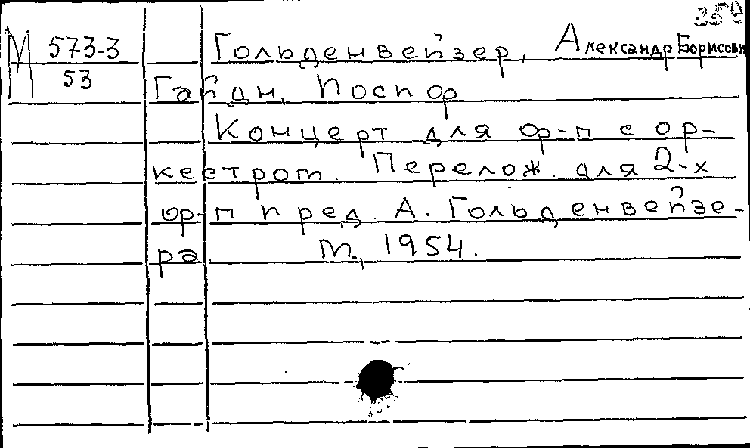 350
М 573-3
53
Гольденвейзер, Александр Борисович
Гайдн,
Концерт для ф-п с ор-
кестром. Перелож. для 2-х
ф-п п ред. А. Гольденвейзе-
ра М., 1954.